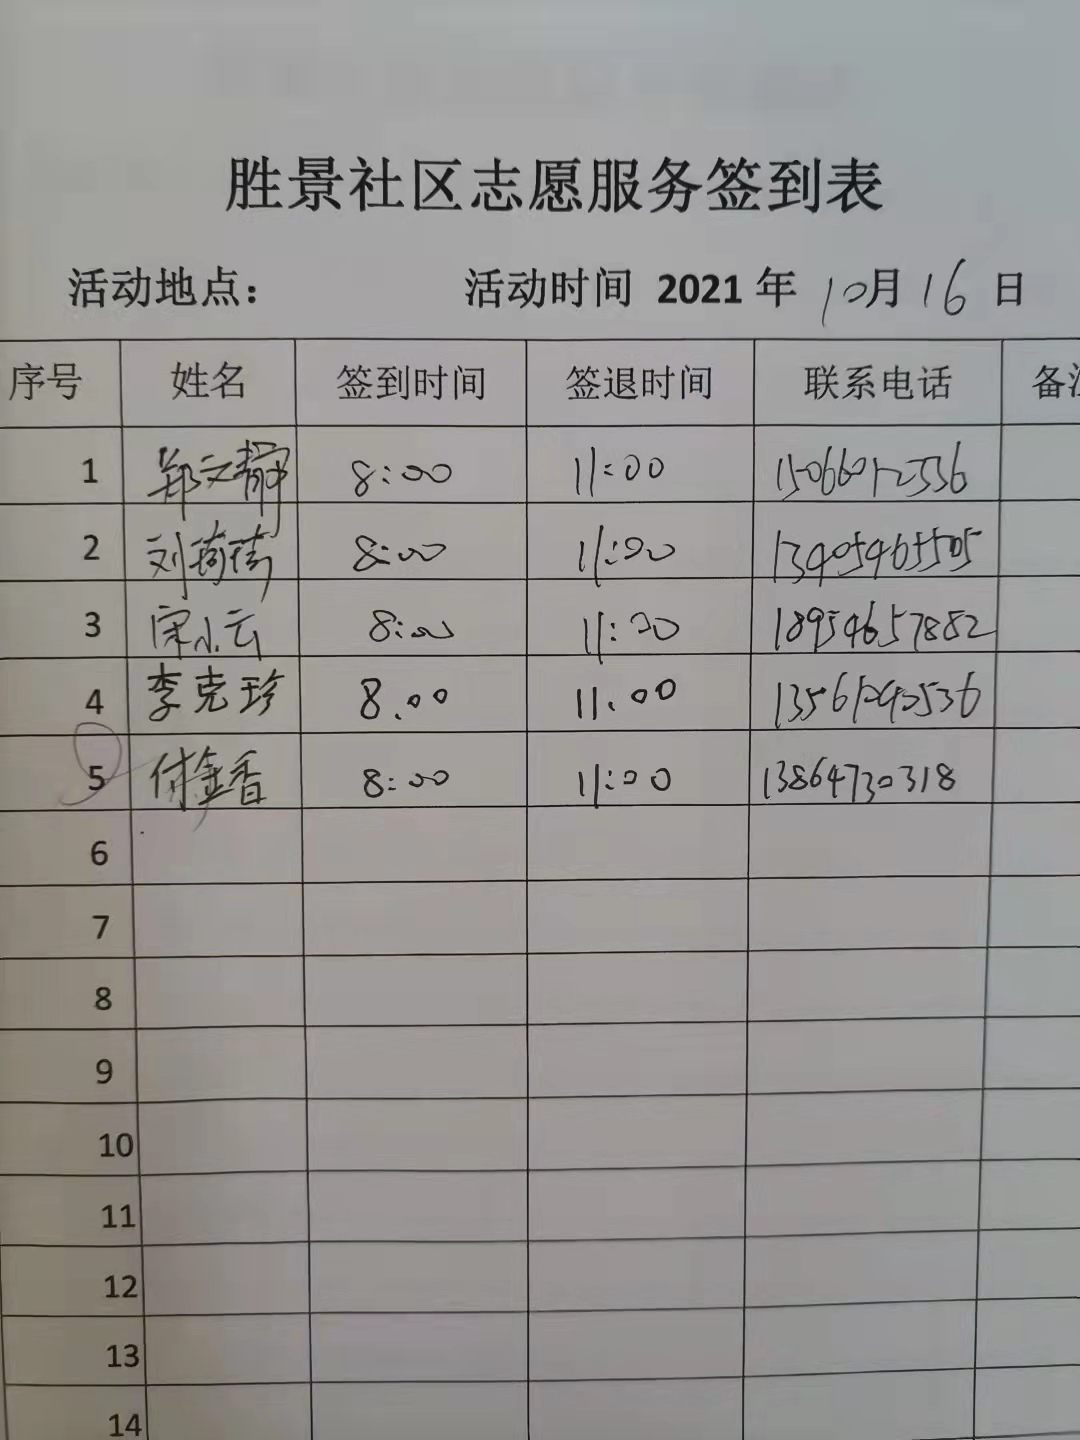 胜景社区志愿服务签到表
活动地点： 活动时间 2021 年 10月 16 日
序号 姓名 签到时间 签退时间 联系电话 备注
1 郑文静 8:00 11:00 15066012336
2 刘琦琦 8:00 11:00 13405465505
3 宋小云 8:00 11:00 18954657882
4 李克珍 8.00 11.00
5 付金香 8:00 11:00 13864730318
6
7
8
9
10
11
12
13
14